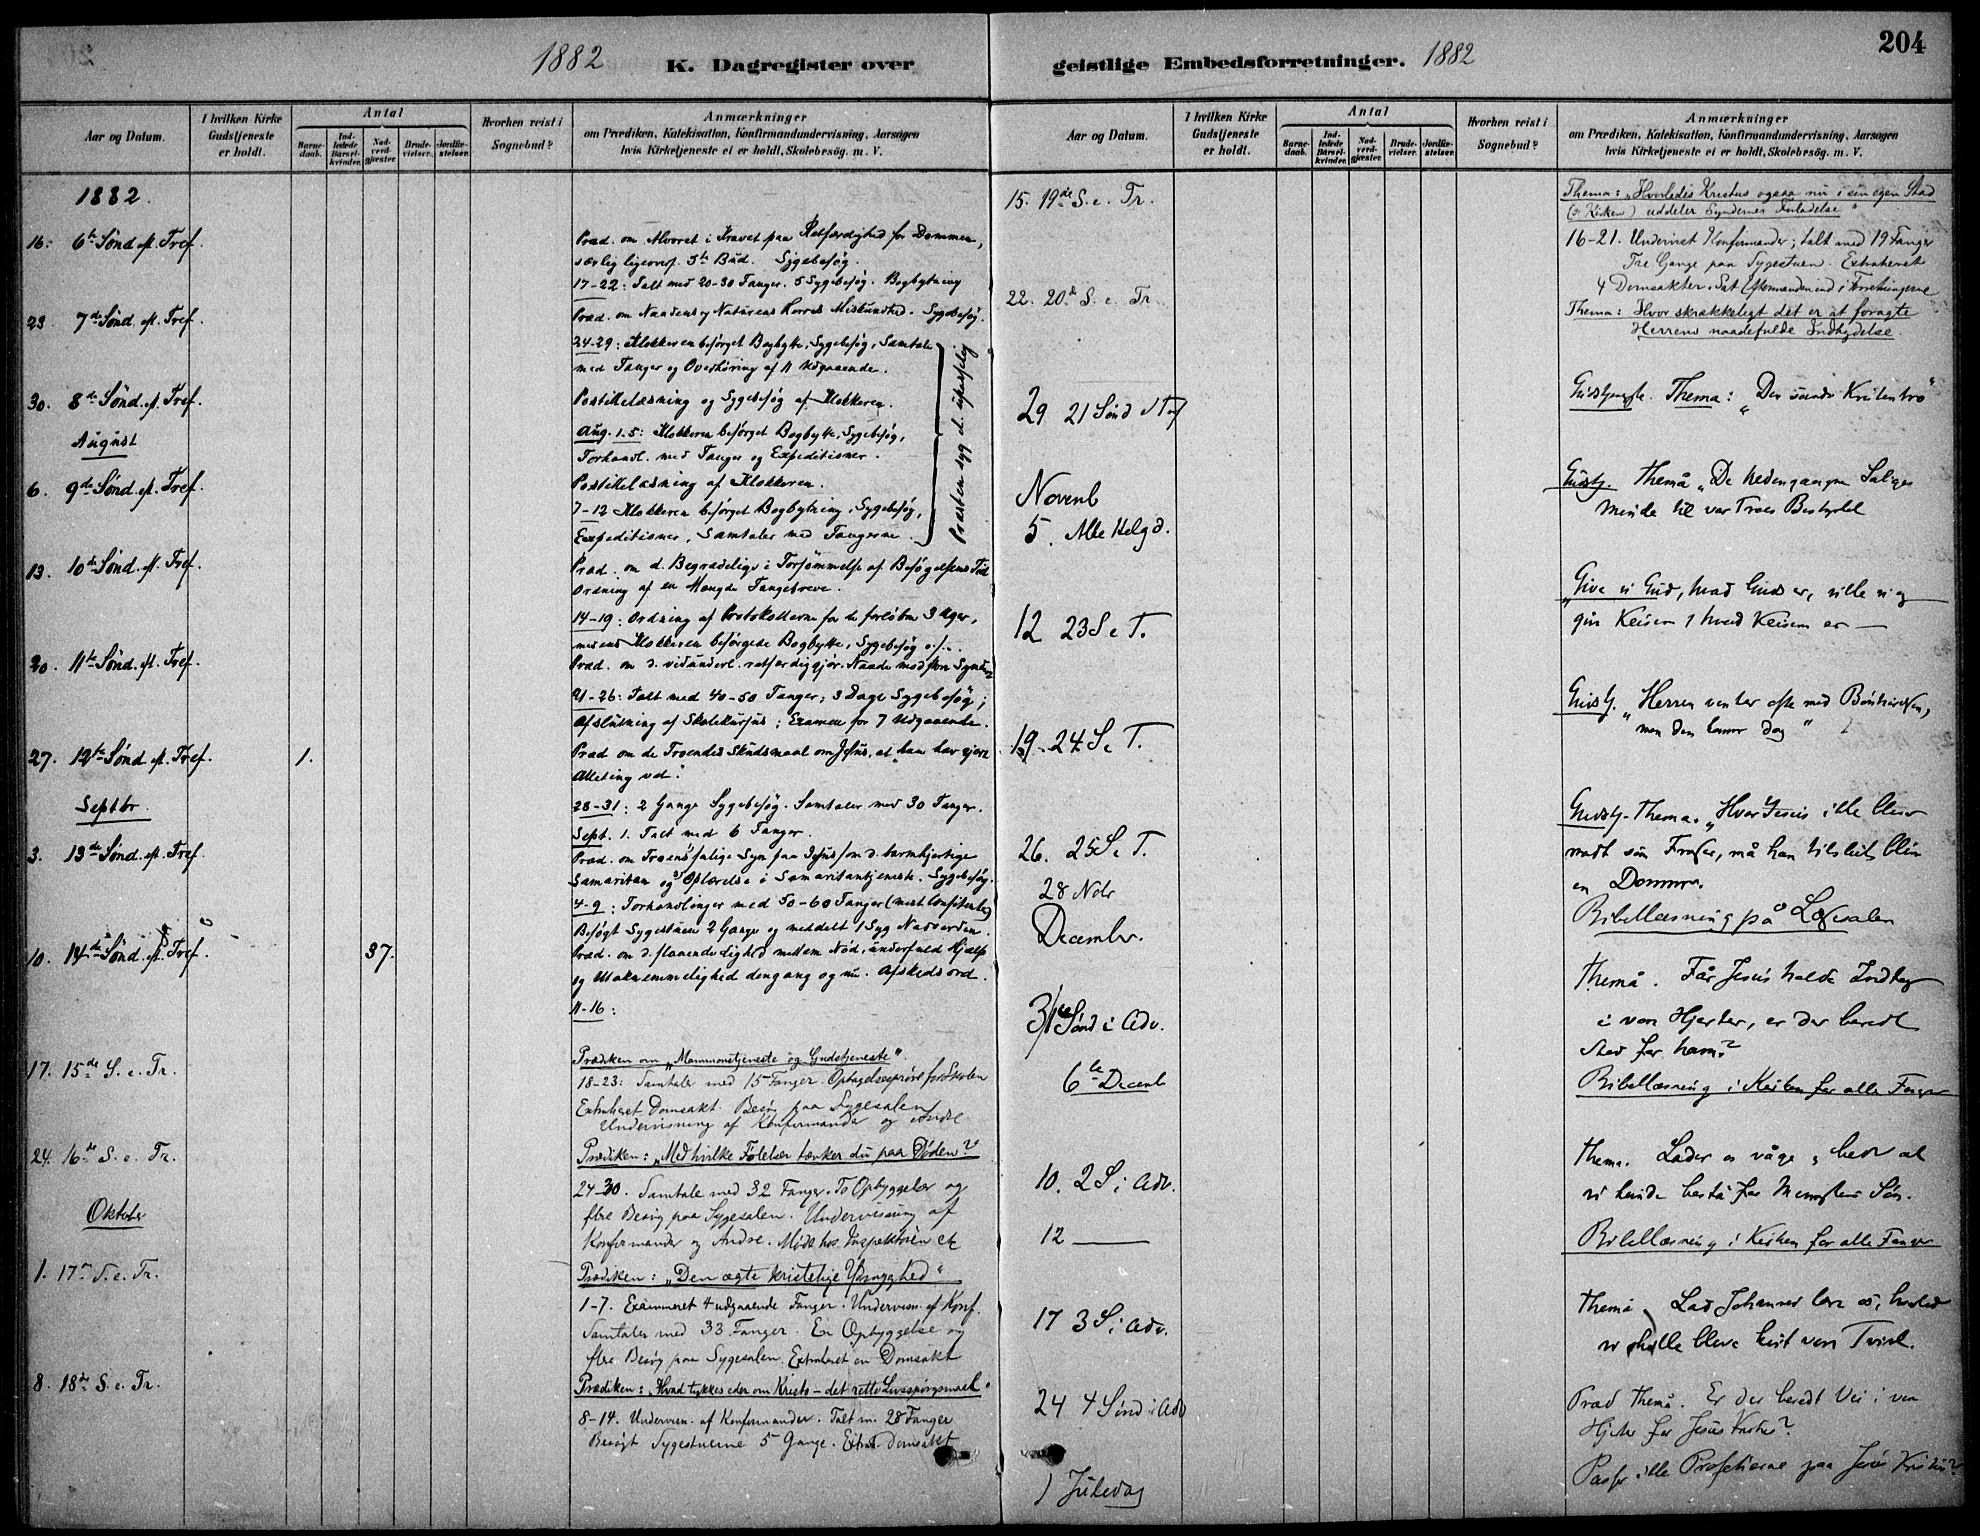 1882
K. Dagregister over
geistlige Embedsforretninger.
1882
204
Aar og Datum.
I hvilken Kirke Gudstjeneste er holdt.
Antal
Barnedaab.
Indledede Barselkvinder.
Nadverdgjæster.
Brudevielser.
Jordfæstelser.
Hvorhen reist i Sognebud?
Anmærkninger
om Prædiken, Katekisation, Konfirmandundervisning, Aarsagen
hvis Kirketjeneste ei er holdt, Skolebesög. m. V.
1882.
16. 6te Sønd. ef. Tref.
Præd. om Alvoret i Kravet paa Retfærdighed for Dommen,
særlig ligeoverf. 5te Bud. Sygebesøg.
17-22: Talt med 20-30 Fanger. 5 Sygebesøg. Bogbytning
23. 7de Sønd. ef. Tref.
Præd. om Naadens og Naturens Herres Miskundhed. Sygebesøg.
24-29: Klokkeren besørget Bogbytte, Sygebesøg, Samtale
med Fanger og Overhøring af 11 Udgaaende.
30. 8de Sønd. ef. Tref.
Postillelæsning og Sygebesøg af Klokkeren.
August
Aug. 1-5: Klokkeren besørget Bogbytte, Sygebesøg,
Forhandl. med Fanger og Expeditioner.
6. 9de Sønd. ef. Tref.
Postillelæsning af Klokkeren.
7-12 Klokkeren besørget Bogbytning, Sygebesøg,
Expeditioner, Samtaler med Fangerne.
Præsten syg
13. 10de Sønd. ef. Tref.
Præd. om d. Begrædelige i Forsømmelse af Besøgelsens Tid
Ordning af en Mængde Fangebreve.
14-19: Ordning af Protokollerne for de forløbne 3 Uger,
mens Klokkeren besørgede Bogbytte, Sygebesøg o.s.v.
20. 11te Sønd. ef. Tref.
Præd. om d. vidunderl. retfærdiggjør. Naade mod store Syndere
21-26: Talt med 40-50 Fanger; 3 Dage Sygebesøg;
Afslutning af Skolekursus; Examen for 7 Udgaaende.
27. 12te Sønd. ef. Tref. 1.
Præd om de Troendes Skudsmaal om Jesus, at "han har gjort
Alleting vel."
Septbr.
28-31: 2 Gange Sygebesøg. Samtaler med 30 Fanger.
Sept. 1. Talt med 6 Fanger.
3. 13de Sønd. ef. Tref.
Præd. om Troens salige Syn paa Jesus som d. barmhjertige
Samaritan og Oplærelse i Samaritantjeneste. Sygebesøg.
4-9: Forhandlinger med 50-60 Fanger
Besøgt Sygestuen 2 Gange og meddelt 1 Syg Nadverden.
10. 14de Sønd. ef. Tref. 37.
Præd. om d. slaaende Lighed mellem Nød, underfuld Hjælp
og Utaknemmelighed dengang og nu. Afskedsord.
11-16:
17. 15de S. e. Tr.
Prædiken om „Mammonstjeneste og Gudstjeneste".
18-23: Samtaler med 15 Fanger. Optagelsesprøve for Skolen
Extraheret Domsakt. Besøg paa Sygesalen
Undervisning af Konfirmander og Andre
24. 16de S. e. Tr.
Prædiken: „Med hvilke Følelser tænker du paa Døden?"
24-30. Samtale med 32 Fanger. To Opbyggelser og
flere Besøg paa Sygesalen. Undervisning af
Konfirmander og Andre. Møde hos Inspektøren etc
Oktober
1. 17de S. e. Tr.
Prædiken: „Den ægte kristelige Ydmyghed"
1-7. Examineret 4 udgaaende Fanger. Undervisn. af Konf.
Samtaler med 33 Fanger. En Opbyggelse og
flere Besøg paa Sygesalen. Extraheret en Domsakt
8. 18de S. e. Tr.
Prædiken: „Hvad tykkes eder om Krist - det rette Livsspørgsmaal"
8-14. Undervisn. af Konfirmander. Talt m. 28 Fanger
Besøgt Sygestuerne 5 Gange. Extrah. Domsakt
Aar og Datum.
I hvilken Kirke Gudstjeneste er holdt.
Antal
Barnedaab.
Indledede Barselkvinder.
Nadverdgjæster.
Brudevielser.
Jordfæstelser.
Hvorhen reist i Sognebud?
Anmærkninger
om Prædiken, Katekisation, Konfirmandundervisning, Aarsagen
hvis Kirketjeneste ei er holdt, Skolebesög. m. V.
15. 19de S. e. Tr.
Thema: „Hvorledes Kristus ogsaa nu i sin egen Stad
(o: Kirken) uddeler Syndernes Forladelse"
16-21. Undervist Konfirmander; talt med 19 Fanger
Tre Gange paa Sygestuen. Extraheret
4 Domsakter. Sat Eftermanden ind i Forretningerne
22. 20de S. e. Tr.
Thema: Hvor skrækkeligt det er at foragte
Herrens naadefulde Indbydelse.
29 21 Sønd e Tref
Thema: „Den sande Kristentro"
Novenb
5. Alle Helg d.
Gudstj. Thema „De hedengangne Salges
Minde til vor Troes Bestyrkel
12 23 S e T.
„Give vi Gud, hvad Guds er, ville vi og
give Keiseren hvad Keiserens er —
19. 24 S e T.
Gudstj. „Herren venter ofte med Bønhørelsen,
men den kommer dog"
26. 25 S e T.
Gudstj. Thema. „Hvor Jesus ikke bliver
modt som Frelser, må han tilsidst blive
en Dommer.
28 Nobr
Bibellæsning på Læsesalen
December.
3 1ste Sønd i Adv.
Thema. Får Jesus holde Indtog
i vore Hjerter, er der beredt
Sted for ham?
6te Decenb
Bibellæsning i Kirken for alle Fanger
10. 2 S i Adv.
Thema. Lader os våge og bede at
vi kunde bestå for Menneskens Søn.
12 —
Bibellæsning i Kirken for alle Fanger
17 3 S i Adv.
Thema Lad Johannes lære os, hvorled
vi skulle blive kvit vor Tvivl.
24 4 Sønd i Adv
Præd Thema. Er der beredt Vei i vore
Hjerter for Jesus Kristus?
1 Juledag
Passer ikke Profetierne paa Jesus Kristus?